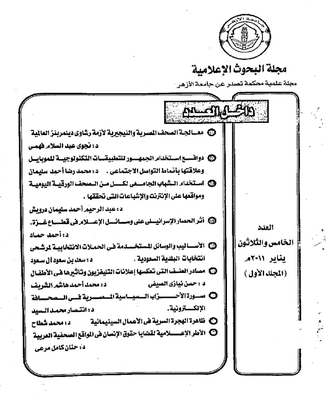 جامعة الأزهر
مجلة البحوث الإعلامية
مجلة علمية محكمة تصدر عن جامعة الأزهر
داخل العدد
معالجة الصحف المصرية والنيجيرية لأزمة رشاوى دينمربنز العالمية
د: نجوى عبد السلام فهمى
دوافع استخدام الجمهور للتطبيقات التكنولوجية للموبايل
وعلاقتها بأنماط التواصل الاجتماعى . د: محمد رضا أحمد سليمان
استخدام الشباب الجامعى لكل من الصحف الورقية اليومية
ومواقعها على الإنترنت والإشباعات التى تحققها.
د: عبد الرحيم أحمد سليمان درويش
أثر الحصار الإسرائيلى على وسائل الإعلام فى قطاع غزة.
د: أحمد حماد
الأساليب والوسائل المستخدمة فى الحملات الانتخابية لمرشحى
انتخابات البلدية السعودية . د: سعد بن سعود آل سعود
مصادر العنف التى تعكسها إعلانات التليفزيون وتأثيرها فى الأطفال
د: حسن نيازى الصيفى د: محمد أحمد هاشم الشريف
صورة الأحزاب السياسية المصرية فى الصحافة
الإلكترونية. د: انتصار محمد السيد
ظاهرة الهجرة السرية فى الأعمال السينمائية د: محمد شطاح
الأطر الإعلامية لقضايا حقوق الإنسان فى المواقع الصحفية العربية
د: حنان كامل مرعى
العدد
الخامس والثلاثون
يناير ٢٠١١م
(المجلد الأول)